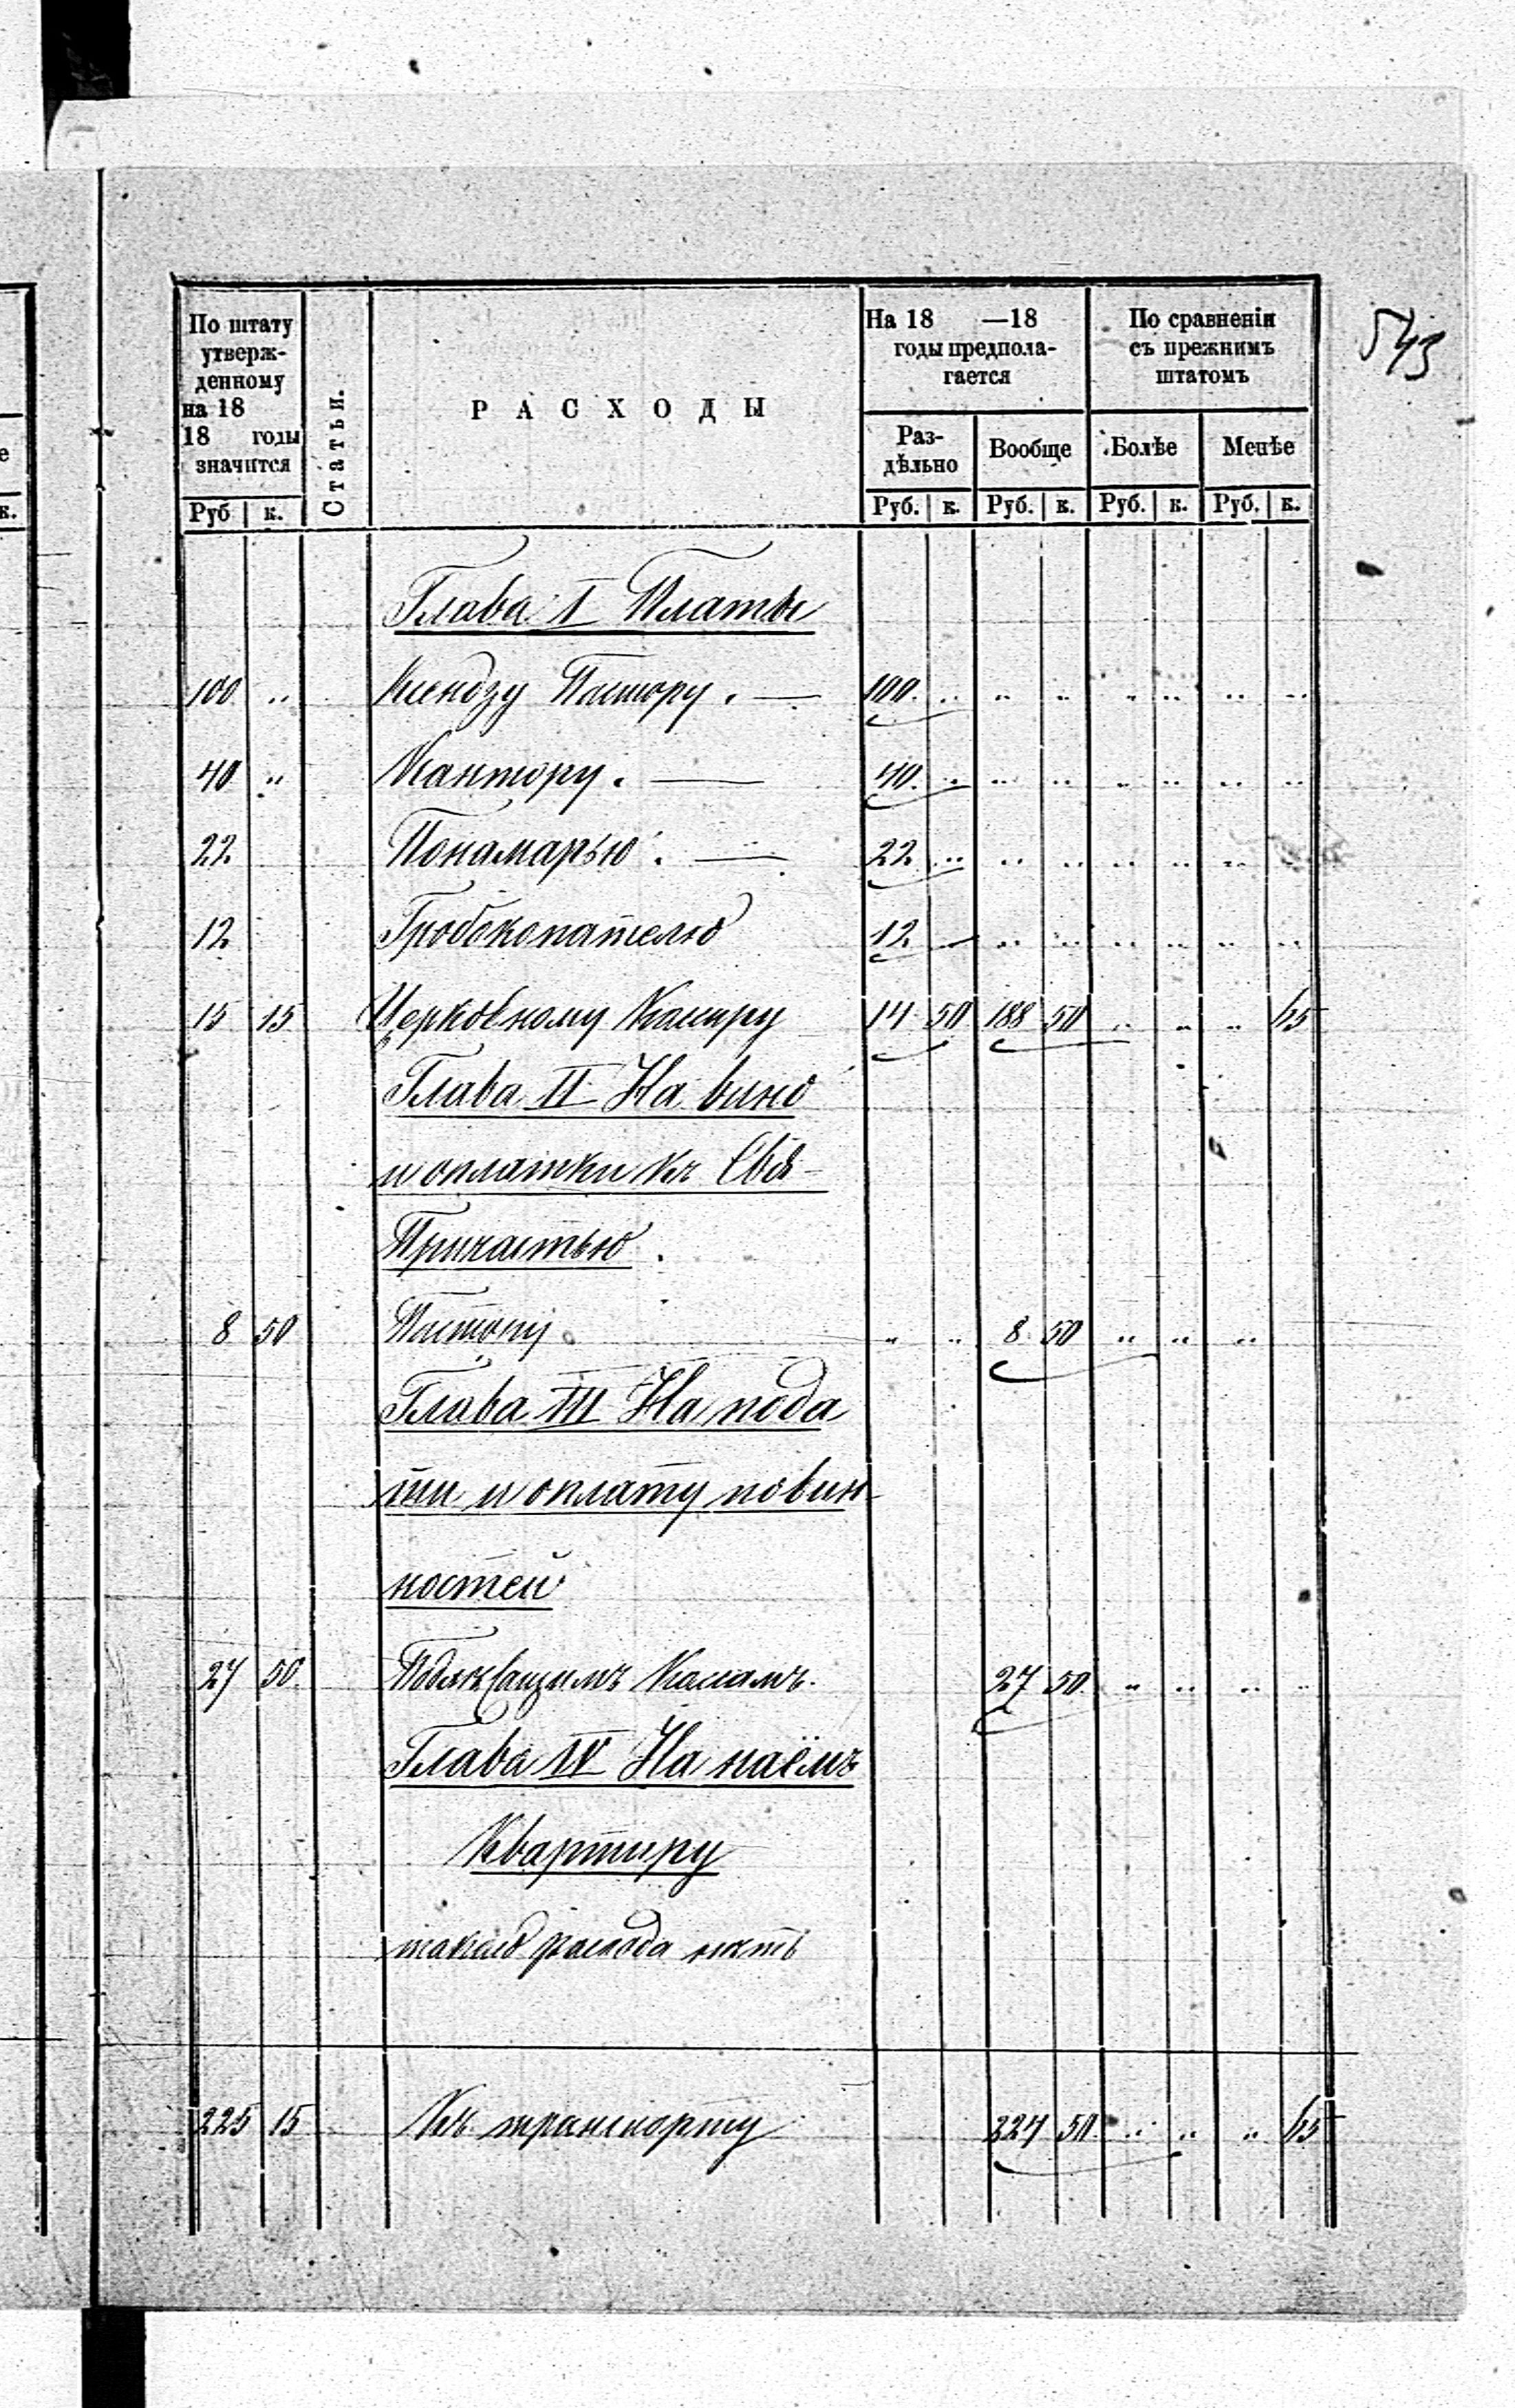 543
По штату утвержденному на 18 18 годы значится
Статьи.
РАСХОДЫ
На 18 —18 годы предполагается
По сравненiи съ прежнимъ штатомъ
Раздѣльно
Вообще
Болѣе
Менѣе
Руб к. Руб. к. Руб. к. Руб. к. Руб. к.
Глава I Платы
100 „ Ксендзу Пастору. — 100. „ „ „ „ „ „ „
40 „ Кантору. — 40. „ „ „ „ „ „ „
22. Понамарью. — 22. „ „ „ „ „ „ „
12. Гробокопателю 12. — „ „ „ „ „ „
15 15 Церковному Касиру 14 50 188 50 „ „ „ 65
Глава II На вино
и оплатки къ Свя-
Причастью.
8 50 Пастору. „ „ 8 50 „ „ „
Глава III На пода
ти и оплату повин-
ностей
27 50. Касамъ. 27 50. „ „ „ „
Глава IV На наёмъ
Квартиру
такого расхода нѣтъ
225 15 Къ транспорту 224 50. „ „ „ 65